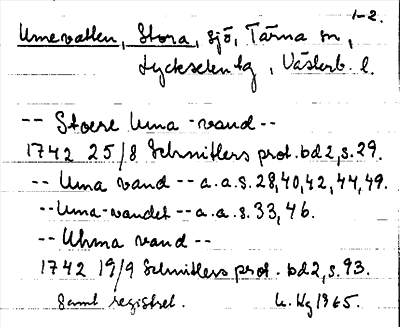 1-2.
Umevatten, Stora, sjö, Tärna sn,
Lycksele lg, Västerb. l.
-- Stoere Uma-vand --
1742 25/8 Schnitlers prot. bd 2, s. 29.
-- Uma vand -- a.a. s. 28, 40, 42, 44, 49.
-- Uma-vandet -- a.a. s. 33, 46.
-- Uhma vand --
1742 19/9 Schnitlers prot. bd 2, s. 93.
Samt registret. K. Hg 1965.